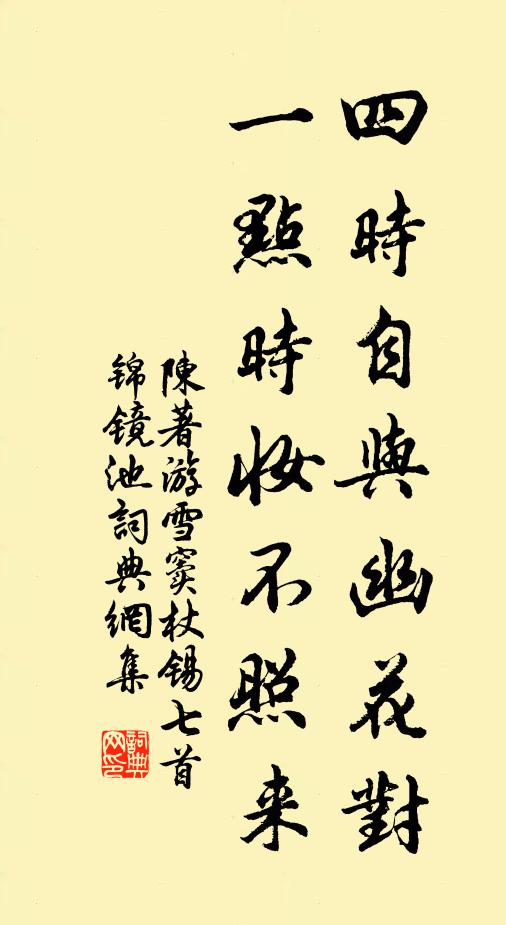 四時自與幽花對
一點時妝不照来
陳著游雪窦杖锡七首
锦镜池詞典網集
詞典
网印